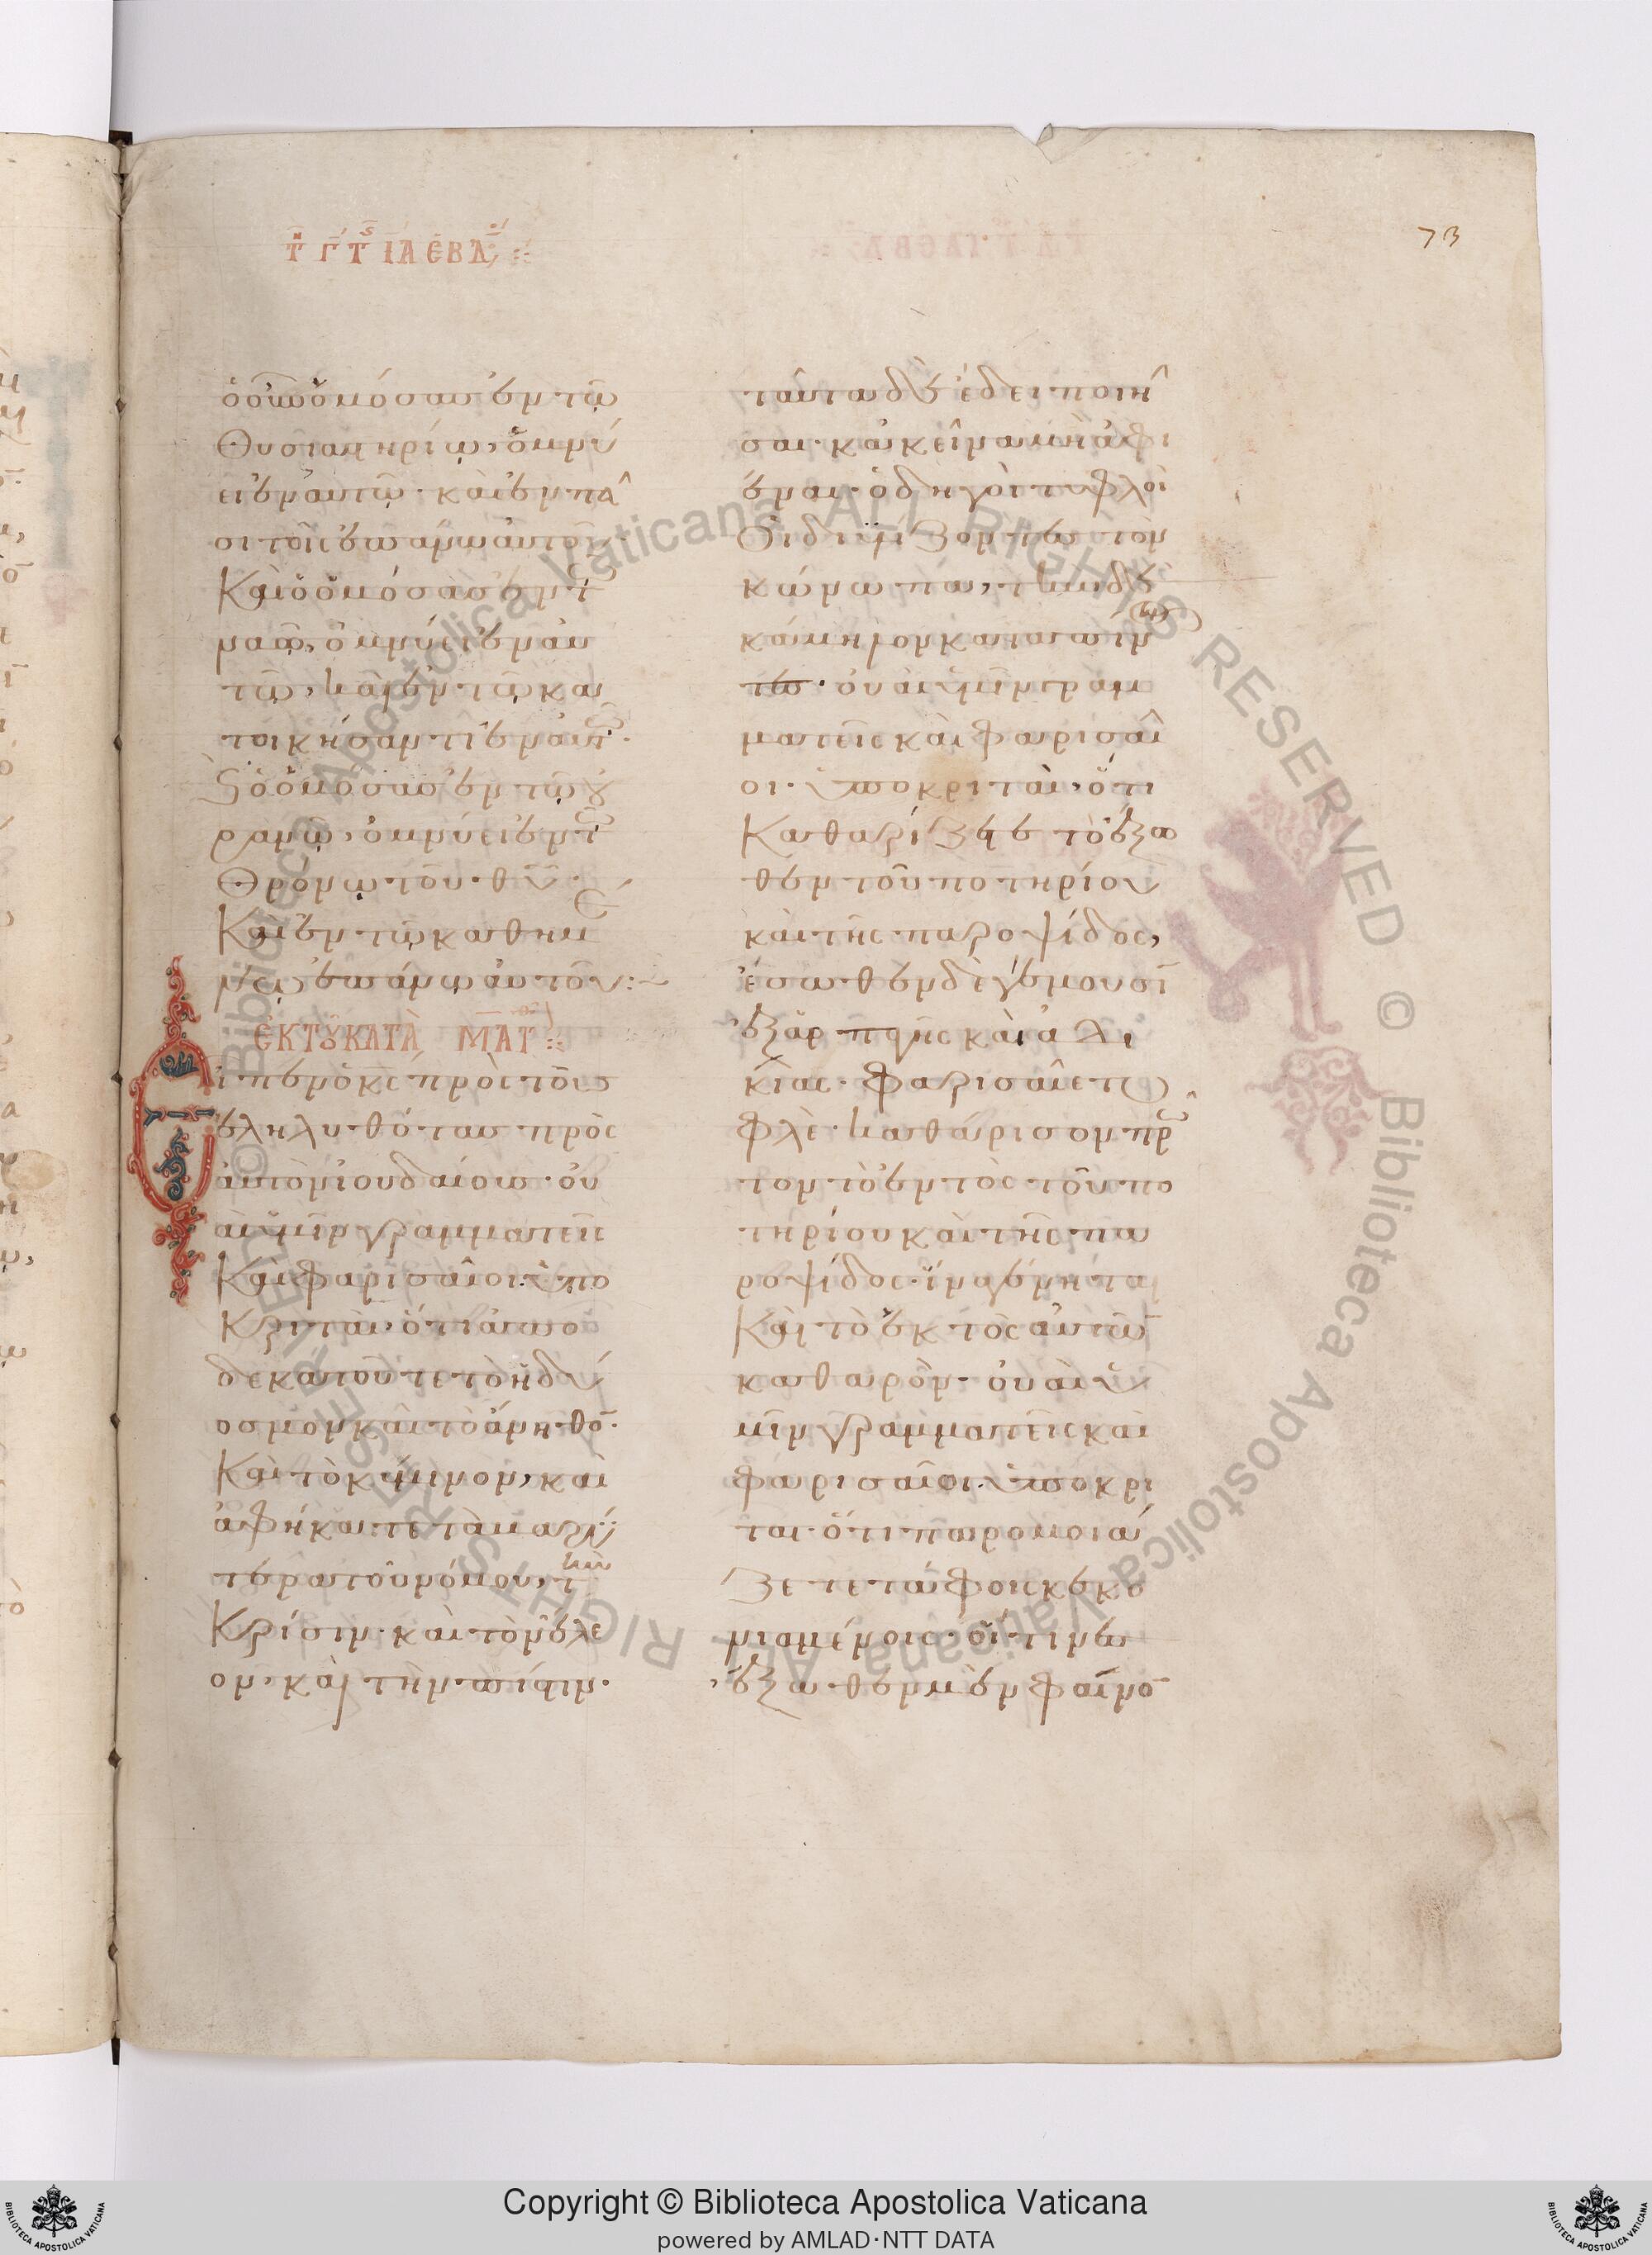 Τῇ Γ τῆς ΙΑ ΕΒΔ
73
ὁ οὖν ὀμόσας ἐν τῷ
θυσιαστηρίῳ, ὀμνύ
ει ἐν αὐτῷ· καὶ ἐν πᾶ
σι τοῖς ἐπάνω αὐτοῦ·
Καὶ ὁ ὀμόσας ἐν τῷ
ναῷ, ὀμνύει ἐν αὐ
τῷ, καὶ ἐν τῷ κα
τοικήσαντι ἐν αὐτῷ·
Ϗ ὁ ὀμόσας ἐν τῷ οὐ
ρανῷ, ὀμνύει ἐν τῷ
Θρόνῳ τοῦ θυ·
Καὶ ἐν τῷ καθημέ
νῳ ἐπάνω αὐτοῦ:
ἘΚ ΤΟΥ ΚΑΤᾺ ΜΑΤΘ
Εἶπεν ὁ κς πρὸς τοὺς
ἐληλυθότας πρὸς
αὐτὸν ἰουδαίους· οὐ
αὶ ὑμῖν γραμματεῖς
Καὶ φαρισαῖοι ὑπο
Κριταί, ὅτι ἀπο
δεκατοῦτε τὸ ἡδύ
οσμον καὶ τὸ ἄνηθον·
Καὶ τὸ κύμινον, καὶ
ἀφήκατε τὰ βαρύ
τερα τοῦ νόμου, τὴν
Κρίσιν· καὶ τὸν ἔλε
ον· καὶ τὴν πίστιν·
ταῦτα δὲ ἔδει ποιῆ
σαι· κἀκεῖνα μὴ ἀφι
έναι· ὁδηγοὶ τυφλοὶ
Οἱ διϋλίζοντες τὸν
κώνωπα, τὴν δὲ
κάμηλον καταπίνον
τες· οὐαὶ ὑμῖν γραμ
ματεῖς καὶ φαρισαῖ
οι· ὑποκριταί, ὅτι
Καθαρίζετε τὸ ἔξω
θεν τοῦ ποτηρίου
καὶ τῆς παροψίδος,
ἔσωθεν δὲ γέμουσιν
ἐξ ἁρπαγῆς καὶ ἀδι
κίας· φαρισαῖε τυ
φλὲ· καθάρισον πρῶ
τον τὸ ἐντὸς τοῦ πο
τηρίου καὶ τῆς πα
ροψίδος· ἵνα γένηται
Καὶ τὸ ἐκτὸς αὐτῶν
καθαρόν· οὐαὶ ὑ
μῖν γραμματεῖς καὶ
φαρισαῖοι ὑποκρι
ταί· ὅτι παρομοιά
ζετε τάφοις κεκο
νιαμένοις· οἵτινες
ἔξωθεν μὲν φαίνον
Copyright © Biblioteca Apostolica Vaticana
powered by AMLAD·NTT DATA